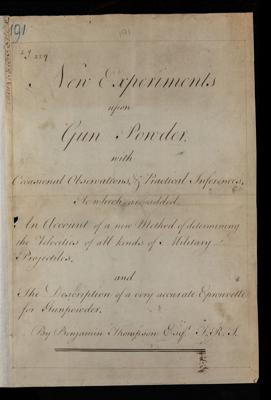 191
191
New Experiments
upon
Gun Powder,
with
Occasional Observations, & Practical Inferences,
To which are added
An Account of a new Method of determining
the Velocities of all kinds of Military
Projectiles,
and
The Description of a very accurate Eprouvette
for Gunpowder.
By Benjamin Thompson Esqr. F. R. S.